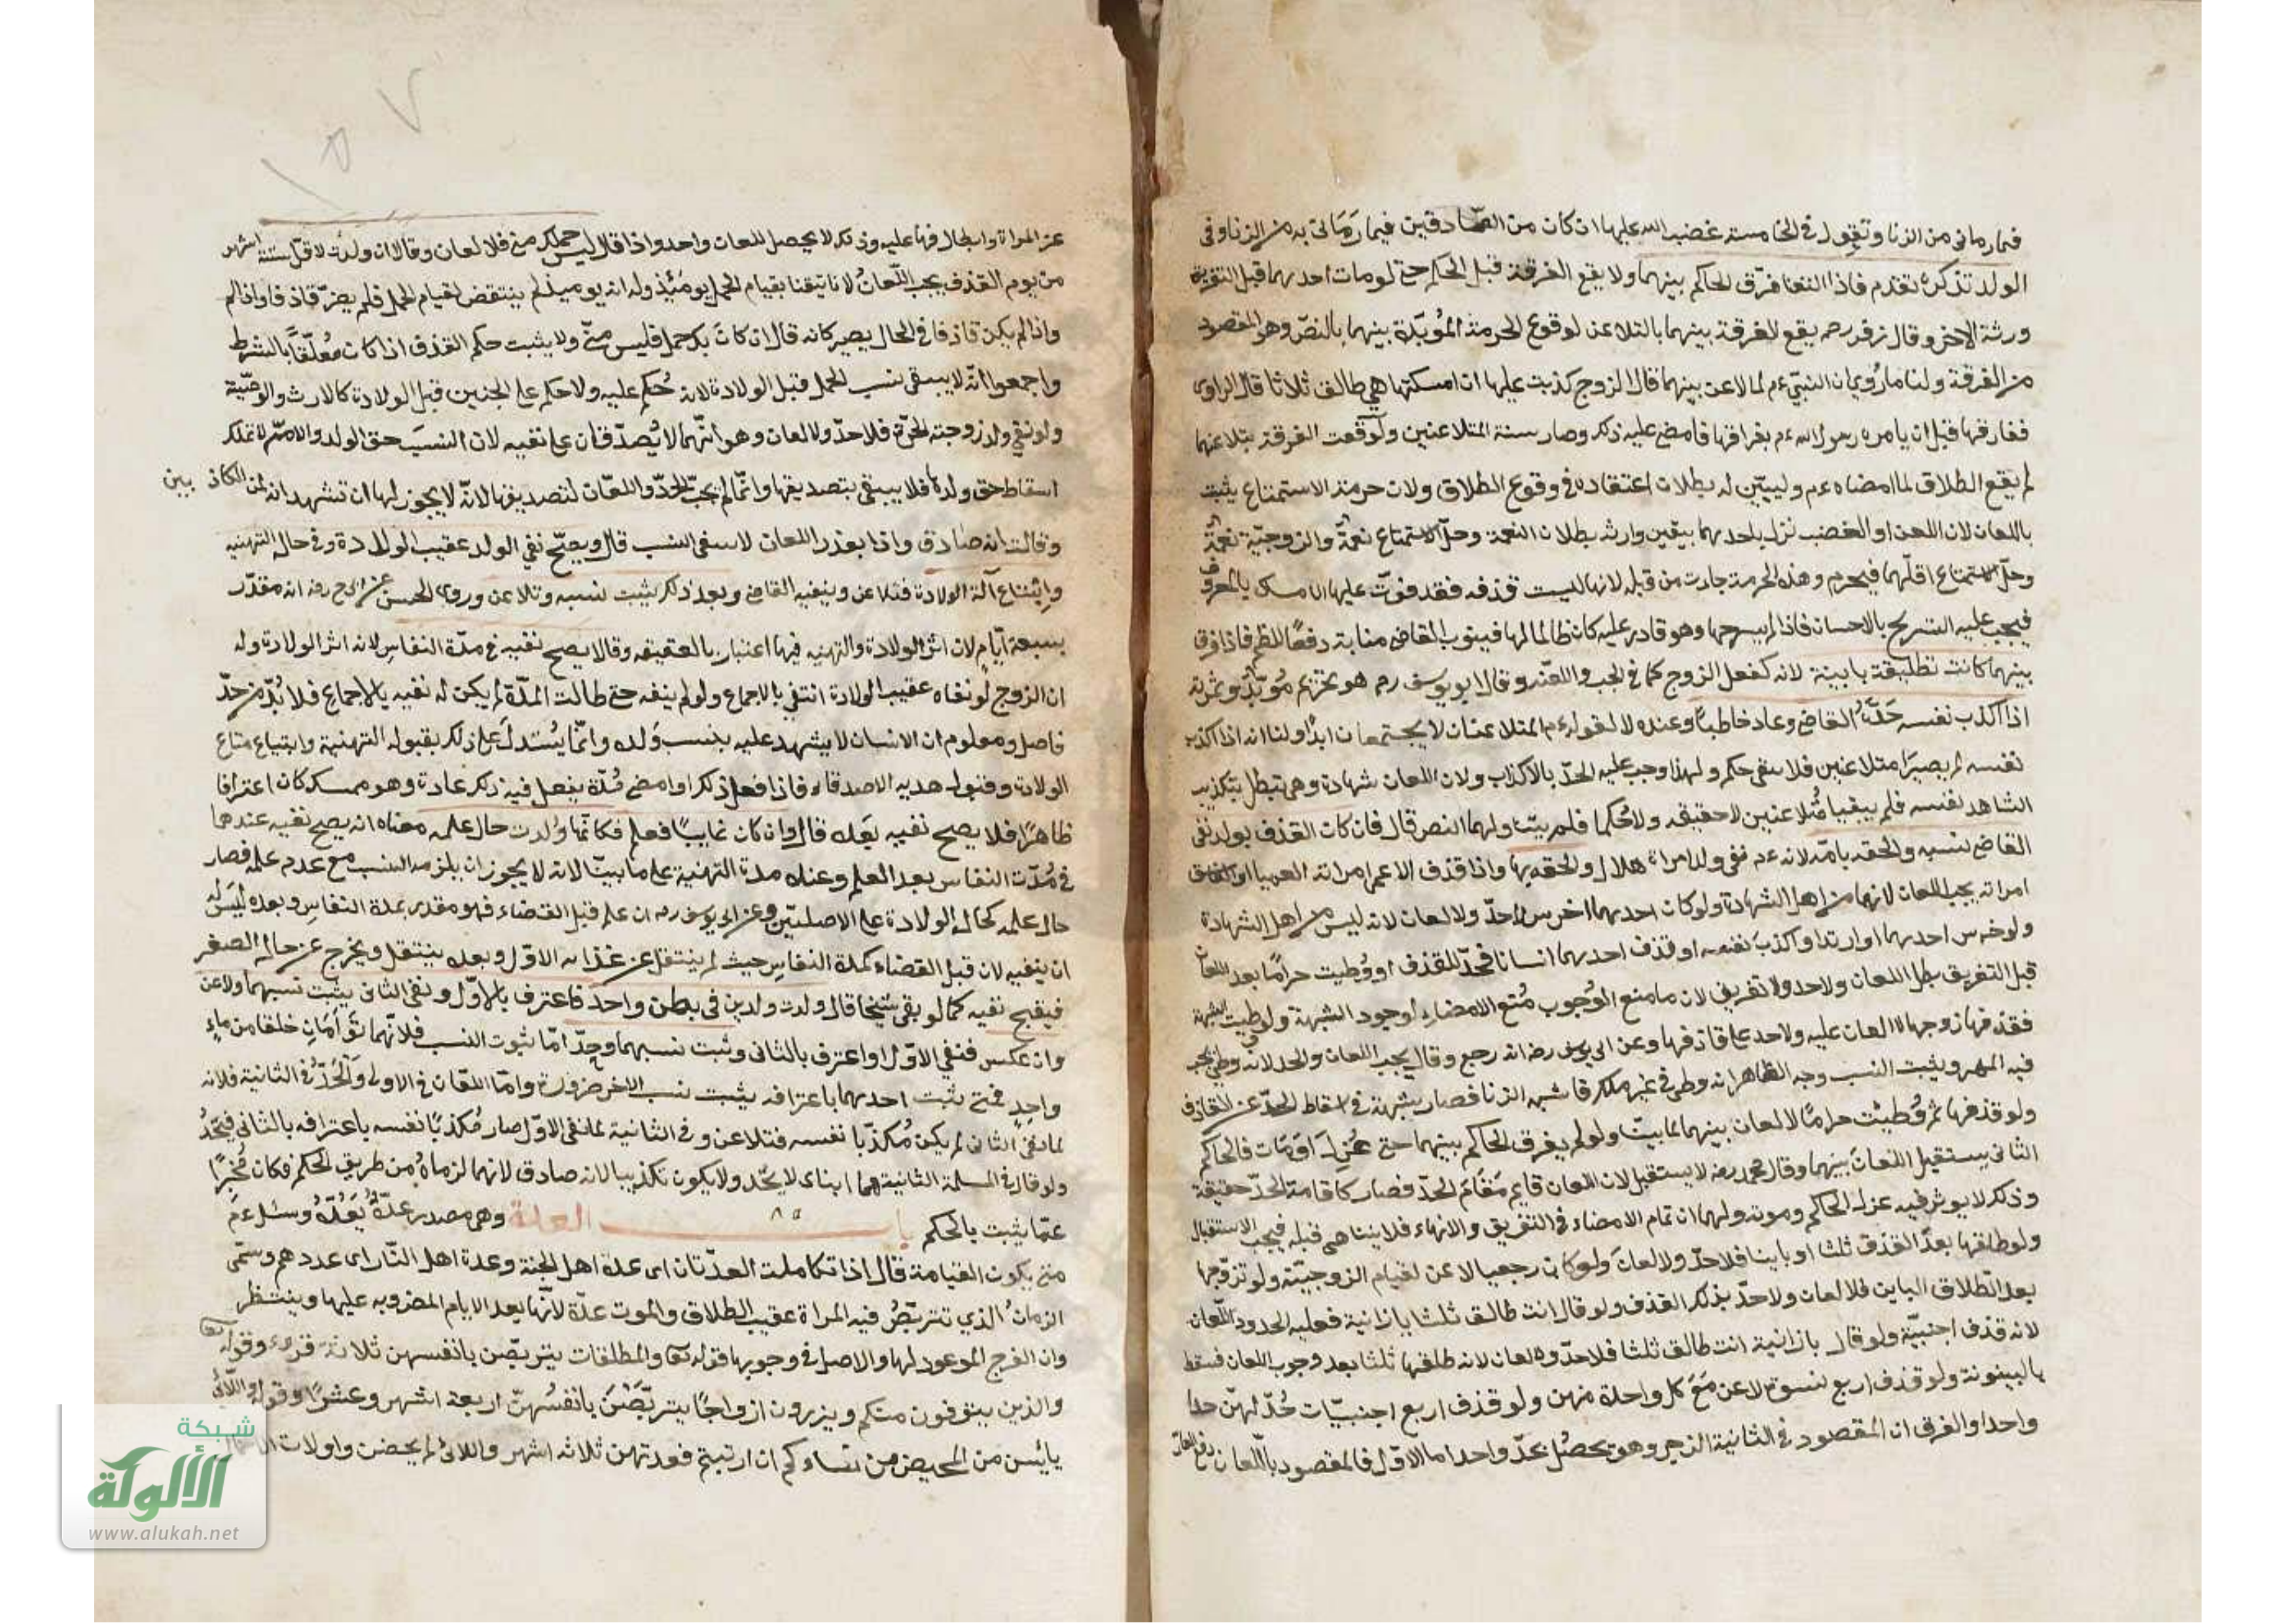 فيما رماني من الزنا وتقول في الخامسة غضب الله عليها ان كان من الصادقين فيما رماني به من الزنا وفي
الولد تذكره تقدم فاذا التعنا فرق الحاكم بينهما ولا يقع الفرقة قبل الحكم حتى لو مات احدهما قبل التفريق
ورثة الاخر وقال زفر رحمه يقع الفرقة بينهما بالتلاعن لوقوع الحرمة المؤبدة بينهما بالنص وهو المقصود
من الفرقة ولنا ما روي ان النبي ءم لما لاعن بينهما قال الزوج كذبت عليها ان امسكتها هي طالق ثلاثا قال الراوي
ففارقها قبل ان يامره رسول الله ءم بفراقها فامضى عليه ذلك وصار سنة المتلاعنين ولو وقعت الفرقة بتلاعنهما
لم يقع الطلاق لما امضاه ءم وليبين له بطلان اعتقاده في وقوع الطلاق ولان حرمة الاستمتاع يثبت
باللعان لان اللعن او الغضب نزل باحدهما بيقين وارثه بطلان النعمة وحل الاستمتاع نعمة والزوجية نعمة
وحل الاستمتاع اقلهما فيحرم وهذه الحرمة جاءت من قبله لانها ليست قذفه فقد فوت عليها الامساك بالمعروف
فيجب عليه التسريح بالاحسان فاذا لم يسرحها وهو قادر عليه كان ظالما لها فينوب القاضي منابه دفعا للظلم فاذا فرق
بينهما كانت تطليقة باينة لانه كفعل الزوج كما في الجب والعنة وقال ابو يوسف رم هو تحريم مؤبد وثمرته
اذا اكذب نفسه حده القاضي وعاد خاطبا وعنده لا لقوله ءم المتلاعنان لا يجتمعان ابدا ولنا انه اذا اكذب
نفسه لم يصيرا متلاعنين فلا يبقى حكم ولهذا وجب عليه الحد بالاكذاب ولان اللعان شهادة وهي تبطل بتكذيب
الشاهد نفسه فلم يبقيا متلاعنين لا حقيقة ولا حكما فلم يتناولهما النص قال فان كان القذف بولد نفى
القاضي نسبه والحقه بامه لانه ءم نفى ولد امراة هلال والحقه بها واذا قذف الاعمى امراته العمياء او الفاسق
امراته يجب اللعان لانهما من اهل الشهادة ولو كان احدهما اخرس لا حد ولا لعان لانه ليس من اهل الشهادة
ولو خرس احدهما او ارتد او اكذب نفسه او قذف احدهما انسانا فحد للقذف او وطيت حراما بعد اللعان
قبل التفريق بطل اللعان ولا حد ولا تفريق لان ما منع الوجوب منع الامضاء لوجود الشبهة ولو وطيت بشبهة
فقذفها زوجها لا لعان عليه ولا حد على قاذفها وعن ابي يوسف رضه انه رجع وقال يجب اللعان والحد لانه وطئ يجب
فيه المهر ويثبت النسب وجه الظاهر انه وطئ في غير ملك فاشبه الزنا فصار شبهة في اسقاط الحد عن القاذف
ولو قذفها ثم وطئت حراما لا لعان بينهما لما بينا ولو لم يفرق الحاكم بينهما حتى عزل او مات فالحاكم
الثاني يستقبل اللعان بينهما وقال محمد رضه لا يستقبل لان اللعان قايم مقام الحد فصار كاقامة الحد حقيقة
وذلك لا يوثر فيه عزل الحاكم وموته ولهما ان تمام الامضاء في التفريق والانهاء فلا يتناهى قبله فيجب الاستقبال
ولو طلقها بعد القذف ثلثا او باينا فلا حد ولا لعان ولو كان رجعيا لاعن لقيام الزوجية ولو تزوجها
بعد الطلاق الباين فلا لعان ولا حد بذلك القذف ولو قال انت طالق ثلثا يا زانية فعليه الحد دون اللعان
لانه قذف اجنبية ولو قال يا زانية انت طالق ثلثا فلا حد ولا لعان لانه طلقها ثلثا بعد وجوب اللعان فسقط
بالبينونة ولو قذف اربع نسوة لاعن مع كل واحدة منهن ولو قذف اربع اجنبيات حد لهن حدا
واحدا والفرق ان المقصود في الثانية الزجر وهو يحصل بحد واحد اما الاول فالمقصود باللعان دفع العار
عن المراة وابطال فراشها عليه وذلك لا يحصل بلعان واحد واذا قال ليس حملك مني فلا لعان وقالا ان ولدت لاقل ستة اشهر
من يوم القذف يجب اللعان لانا تيقنا بقيام الحمل يومئذ وله انه يوميذ لم يتيقن لقيام الحمل فلم يصر قاذفا واذا لم
واذا لم يكن قاذفا في الحال يصير كانه قال ان كان بك حمل فليس مني ولا يثبت حكم القذف اذا كان معلقا بالشرط
واجمعوا انه لا ينتفي نسب الحمل قبل الولادة لانه حكم عليه ولا حكم على الجنين قبل الولادة كالارث والوصية
ولو نفى ولد زوجته الحرة فلا حد ولا لعان وهو انهما لا يصدقان على نفيه لان النسب حق الولد والام لا تملك
اسقاط حق ولدها فلا ينتفي بتصديقها وانما لم يجب الحد واللعان لتصديقها لانه لا يجوز لها ان تشهد انه لمن الكاذبين
وقالت انه صادق واذا تعذر اللعان لا ينتفي النسب قال ويصح نفي الولد عقيب الولادة وفي حالة التهنية
وابتياع آلة الولادة فتلاعن وينفيه القاضي وبعد ذلك يثبت نسبه وتلاعن وروى الحسن عن ابي ح رضه انه مقدر
بسبعة ايام لان اثر الولادة والتهنية فيها اعتبار بالعقيقة وقالا يصح نفيه في مدة النفاس لانه اثر الولادة وله
ان الزوج لو نفاه عقيب الولادة انتفى بالاجماع ولو لم ينفه حتى طالت المدة لم يكن له نفيه بالاجماع فلا بد من حد
فاصل ومعلوم ان الانسان لا يشهد عليه بنسب ولده وانما يستدل على ذلك بقبوله التهنية وابتياع متاع
الولادة وقبول هدية الاصدقاء فاذا فعل ذلك او امضى مدة يفعل فيه ذلك عادة وهو ممسك كان اعترافا
ظاهرا فلا يصح نفيه بعده قال وان كان غايبا فعلم فكانما ولدت حال علمه معناه انه يصح نفيه عندهما
في مدة النفاس بعد العلم وعنده مدة التهنية على ما بينا لانه لا يجوز ان يلزمه النسب مع عدم علمه فصار
حال علمه كحال الولادة على الاصلين وعن ابي يوسف رحه ان علم قبل القضاء فهو مقدر بمدة النفاس وبعده ليس له
ان ينفيه لان قبل القضاء كمدة النفاس حيث لم ينتقل عن غذائه الاول وبعده ينتقل ويخرج عن حالة الصغر
فيقبح نفيه كما لو بقي شيخا قال ولدت ولدين في بطن واحد فاعترف بالاول ونفى الثاني يثبت نسبهما ولاعن
وان عكس فنفى الاول واعترف بالثاني وثبت نسبهما وحد اما ثبوت النسب فلانهما توأمان خلقا من ماء
واحد فمتى يثبت احدهما باعترافه يثبت نسب الاخر ضرورة واما اللعان في الاولى والحد في الثانية فلانه
لما نفى الثاني لم يكن مكذبا نفسه فتلاعن وفي الثانية لما نفى الاول صار مكذبا نفسه باعترافه بالثاني فيحد
ولو قال في المسئلة الثانية هما ابناي لا يحد ولا يكون تكذيبا لانه صادق لانهما لزماه من طريق الحكم فكان مخبرا
عما يثبت بالحكم باب العدة وهي مصدر عده يعده وسئل ءم
متى يكون القيامة قال اذا تكاملت العدتان اى عدة اهل الجنة وعدة اهل النار اى عددهم وسمى
الزمان الذي تتربص فيه المراة عقيب الطلاق والموت عدة لانها يعد الايام المضروبة عليها وينتظر
وان الفرج الموعود لها والاصل في وجوبها قوله تعا والمطلقات يتربصن بانفسهن ثلاثة قروء وقوله تعا
والذين يتوفون منكم ويذرون ازواجا يتربصن بانفسهن اربعة اشهر وعشرا وقوله واللائي
يائسن من المحيض من نساءكم ان ارتبتم فعدتهن ثلاثة اشهر واللائي لم يحضن واولات
شبكة
الألوكة
www.alukah.net